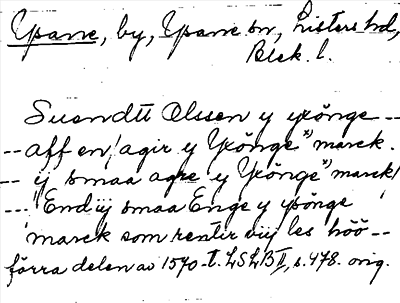 Ysane, by, Ysane sn, Listers hd,
Blek. l.
Suendtt Olssen y ysönge --
-- aff en / agir y Ysönge" marck.
-- ij smaa agre y Ysönge" marck /
-- "End iij smaa Enge y ysönge
marck som rentir viij les höö --
förra delen av 1570-t. LSLB II, s. 478. orig.